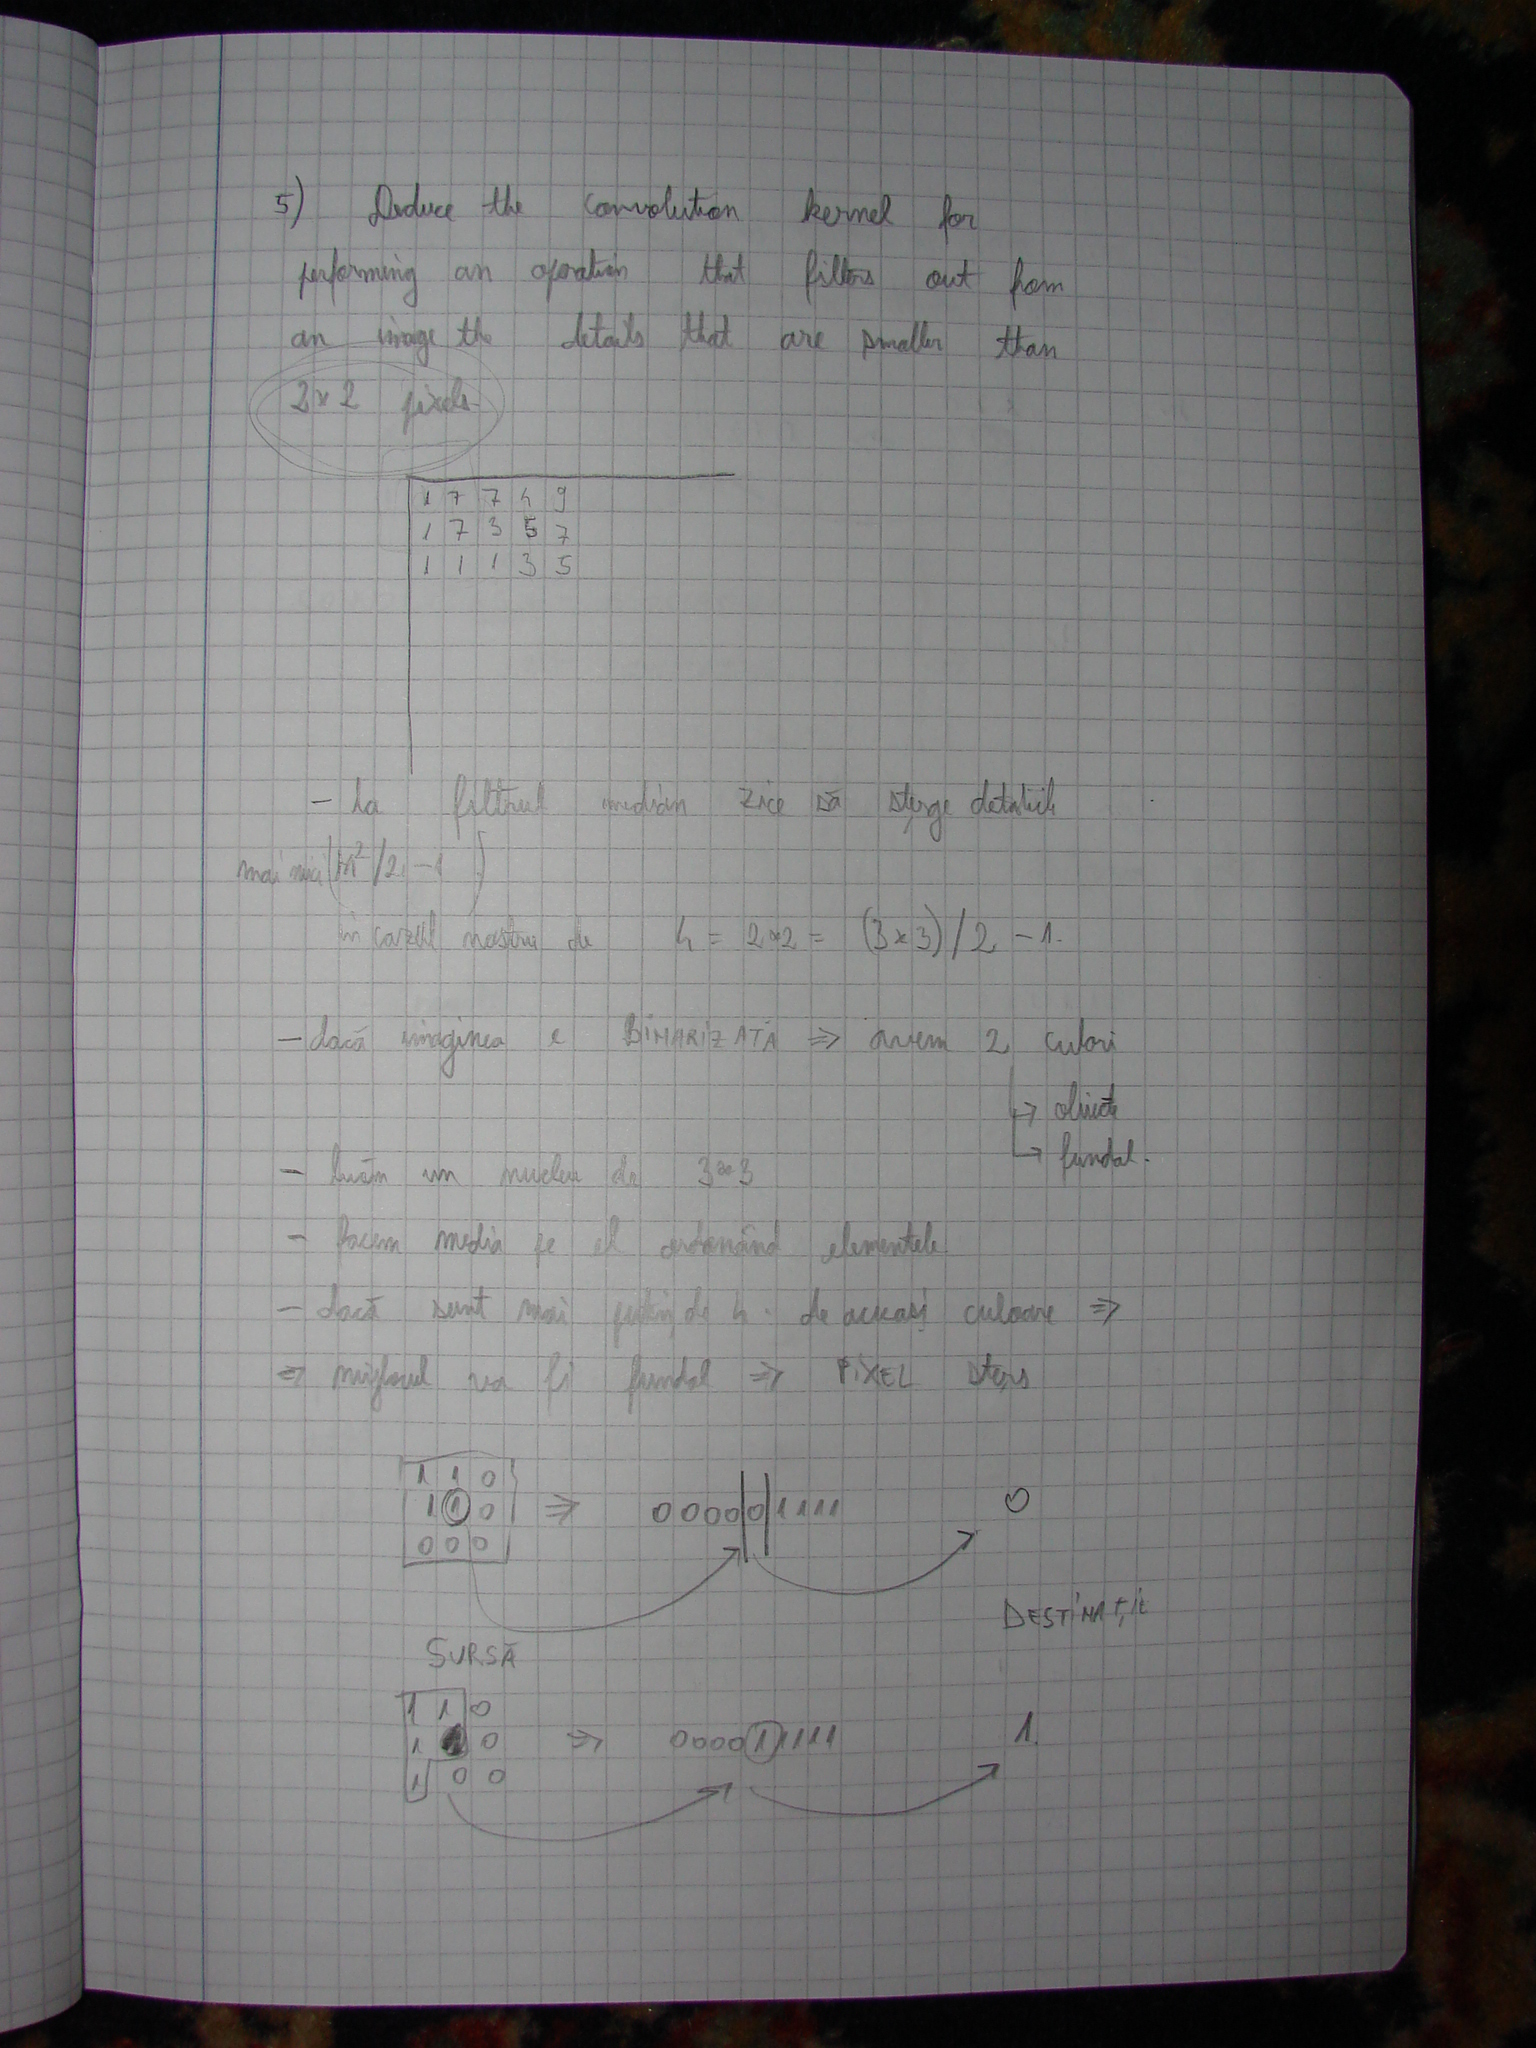 5) Deduce the convolution kernel for
performing an operation that filters out from
an image the details that are smaller than
2x2 pixels.
1 7 7 4 9
1 7 3 5 7
1 1 1 3 5
- la filtrul median zice să șterge detaliile
mai mici (N²/2 - 1)
în cazul nostru de 4 = 2*2 = (3*3)/2 - 1.
- dacă imaginea e BINARIZATĂ => avem 2 culori
-> obiecte
-> fundal.
- luăm un nucleu de 3*3
- facem media pe el ordonând elementele
- dacă sunt mai puțin de 4 de aceeași culoare =>
=> mijlocul va fi fundal => PIXEL șters
1 1 0
1 1 0 => 0 0 0 0 |0| 1 1 1 1 0
0 0 0
DESTINAȚIE
SURSĂ
1 1 0
1 0 => 0 0 0 0 1 1 1 1 1 1.
1 0 0